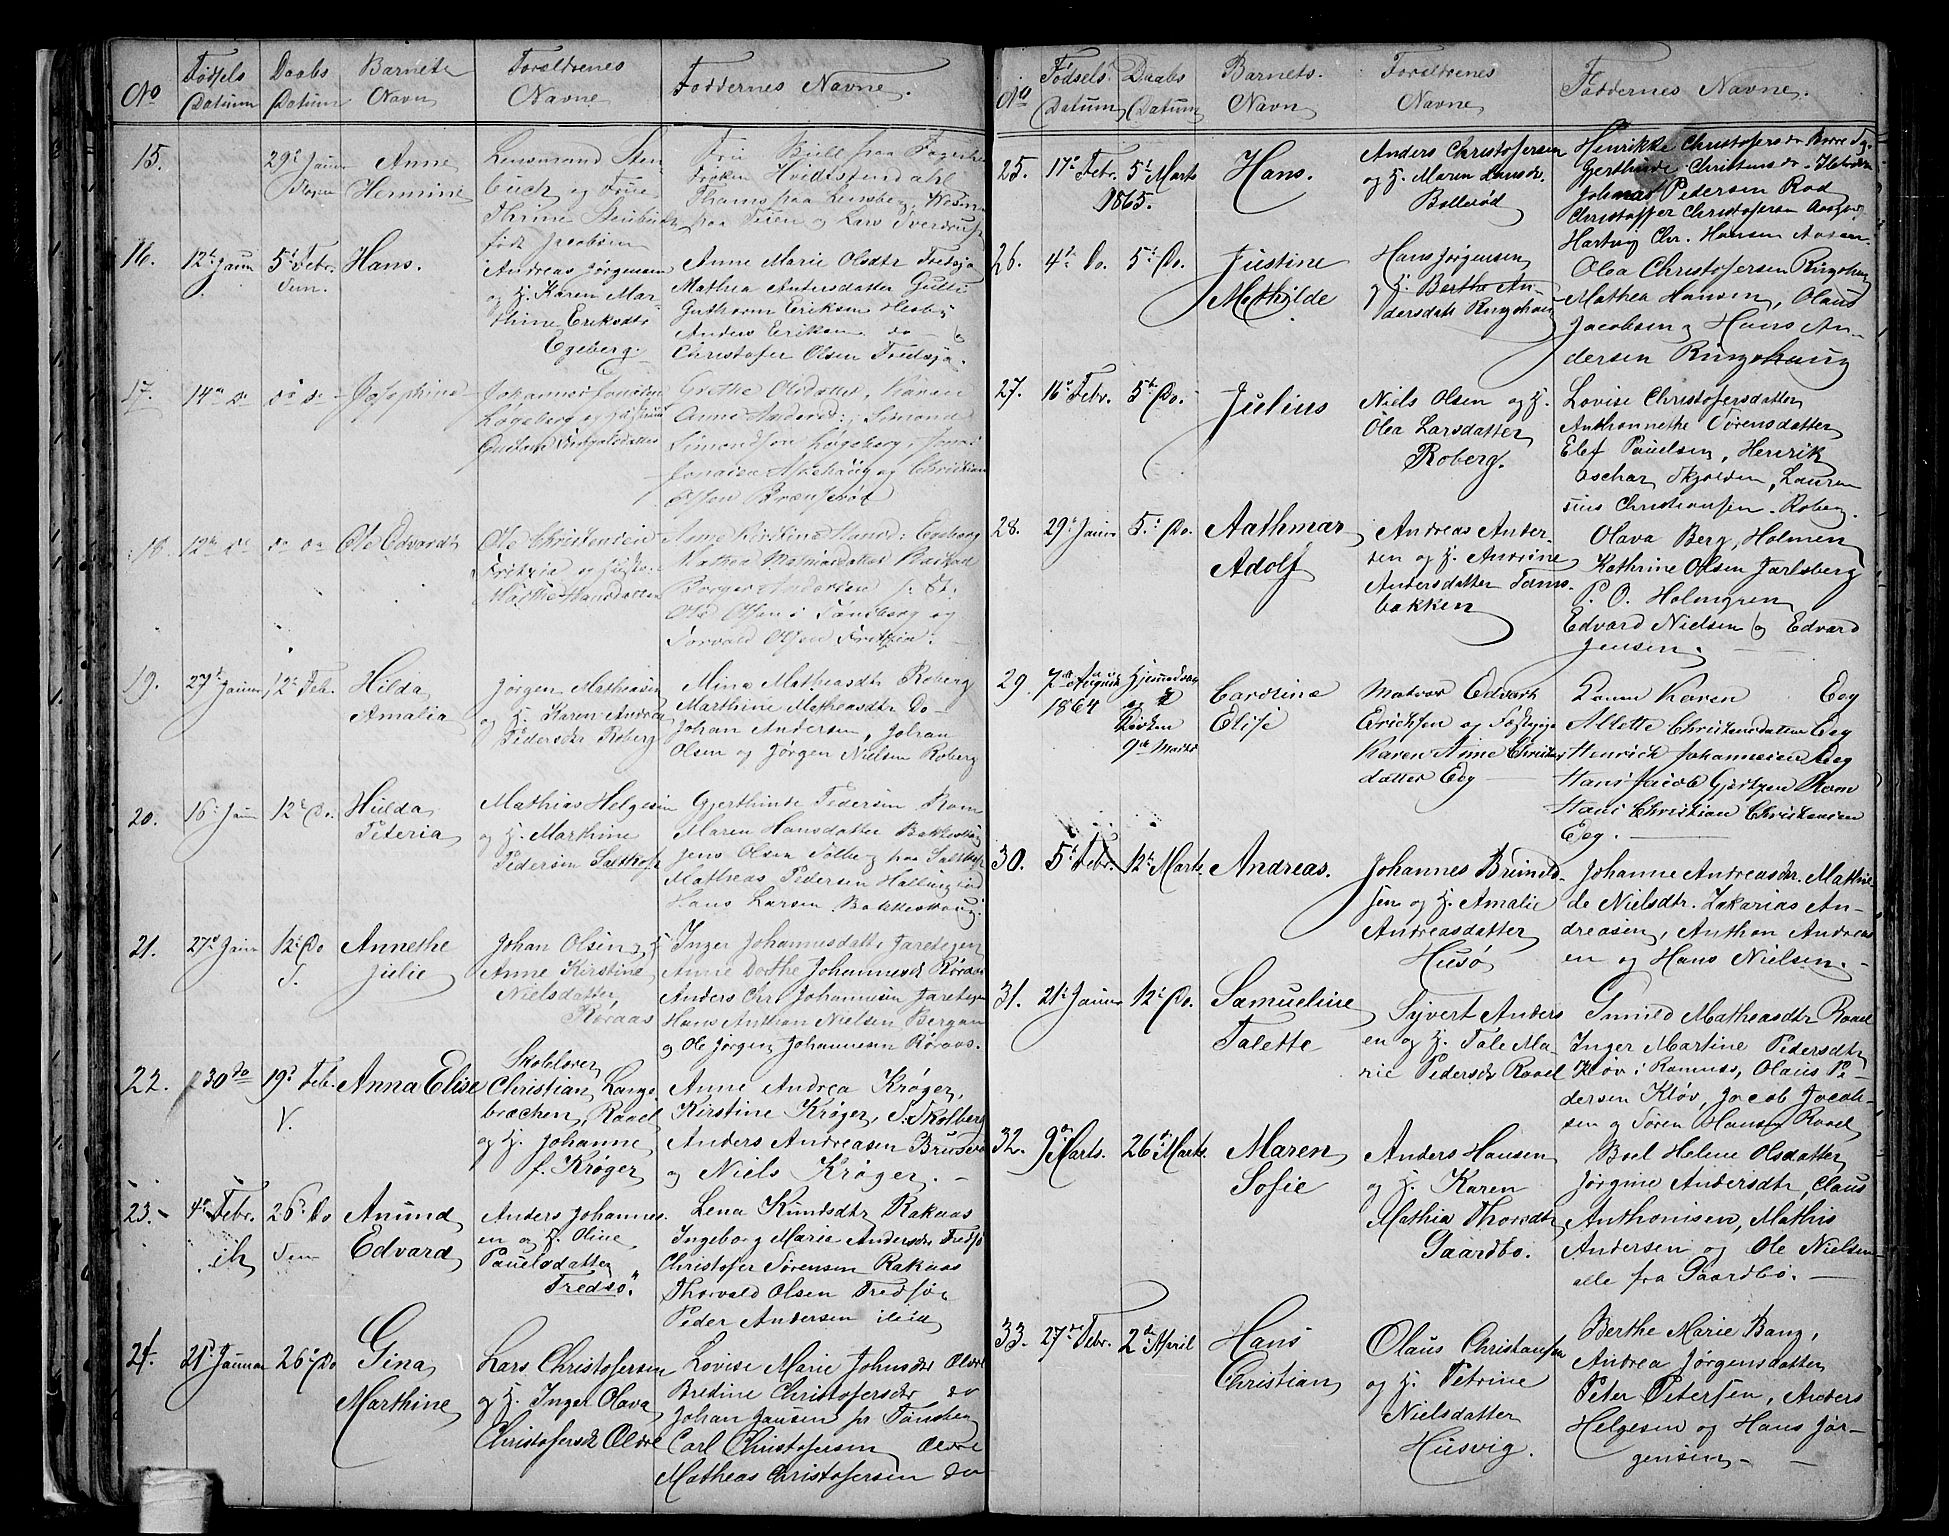 No
Fødsels Datum
Daabs Datum
Barnets Navn
Forældrenes Navne
Faddernes Navne.
15.
29de Januar
Anne
Hermine
Lensmand Sten
buch og Frue
Thrine Stenbuch
født Jacobsen
Fru Bull fra
Frøken Hvidtfendahl
Thams fra
fra og Lars Sverdrup
16.
12te Januar
5te Febr.
Hans.
Andreas Jørgensen
og H. Karen Mar
thine Eriksdtr
Egeberg.
Anne Marie Olsdtr Tredsjø
Mathea Andersdatter
Guthorm Eriksen Hesby
Anders Eriksen do
Christofer Olsen Tredsjø.
17.
14de do
do do
Josephine
Johannes Jonassen
Løgeberg og Hustru
Grethe Olsdatter, Karen
Anne Andersd: Simond
Simondssen Løgeberg,
og Christian
Olssen
18
12te do
do do
Ole Edvard
Ole Christensen
Fritzøe og Hustru
Marthe Hansdatter
Anne Kirstine Hansd: Egeberg
Mathea
Borger Andersen
Ole Olsen i Tønsberg og
Torvald Olsen
19.
27de Januar
12te Feb.
Hilda
Amalia
Jørgen Mathiasen
og H. Karen Andrea
Pedersdtr Roberg
Mina Mathiasdtr Roberg
Marthine Matheasdtr Do
Johan Andersen, Johan
Olsen og Jørgen Nielsen Roberg
20.
16de Jan
12te Do.
Hulda
Peteria
Mathias Helgesen
og H. Marthine
Pedersen
Gjerthinde Pedersen Ram
Maren Hansdatter Bakkeshaug
Jens Olsen Solberg fra
Matheas Pedersen
Hans Larsen Bakkeshaug.
21.
27de Januar
12te Do
T.
Annethe
Julie
Johan Olsen, H.
Anne Kirstine
Nielsdatter,
Røraas
Inger Johannesdatter Jaretegen
Anne Dorthe Johannesdtr Røraas
Anders Chr. Johannesen Jaretegen
Hans Anthon Nielsen Bergan
og Ole Jørgen Johannesen Røraas.
22.
30te
19de Feb.
V.
Anna Elise
Skolelærer
Christian Lange
brechen, Raael
og H. Johanne
f. Krøger
Anne Andrea Krøger,
Kirstine Krøger,
Anders Andreasen
og Niels Krøger.
23.
4de Febr.
26de Do
Tem
Anund
Edvard
Anders Johannes
en og H. Oline
Pauelsdatter
Tredsø.
Lena Knudsdtr Rakaas
Ingeborg Marie Andersdtr Tredsø
Christofer Sørensen Rakaas
Thorvald Olsen Tredsjø
Peder Andersen ibid
24.
21de Januar
26de Do
Gina
Marthine
Lars Christofersen
og H. Inger Olava
Christofersdtr
Lovise Marie Johnsdtr
Bredine Christofersdtr do
Johan Jansen fr Tønsberg
Carl Christofersen
Matheas Christofersen do
No
Fødsels Datum
Daabs Datum
Barnets Navn
Forældrenes Navne
Faddernes Navne.
25.
17de Febr.
5te Marts
1865.
Hans.
Anders Christofersen
og H. Maren Larsdtr.
Bollerød
Henrikke Christofersdtr Borre
Gerthrude Christensdtr
Johnas Pedersen Rød
Christoffer Christofersen
Hartvig Chr. Hansen
26.
4de Do.
5te Do.
Justine
Mathilde
Hans Jørgensen
og H. Berthe An-
dersdatr Ringshaug
Olea Christofersen Ringshaug
Mathea Hansen, Olaus
Jacobsen og Hans An-
dersen Ringshaug
27.
16de Febr.
5te Do.
Julius
Niels Olsen og H.
Olea Larsdatter
Roberg.
Lovise Christofersdatter
Anthonnethe Sørensdatter
Elef Pauelsen, Henrik
Oschar Skjolden, Lauren
sius Christiansen. Roberg.
28.
29de Januar
5te Do.
Aathmar
Adolf
Andreas Ander-
sen og H. Andrine
Andersdatter Toms-
bakken
Olava Berg, Holmen
Kathrine Olsen Jarlsberg
P. O. Holmgren
Edvard Nielsen og Edvard
Jensen.
29.
7de August
1864
Hjemmedøbt
og i
Kirken
9de Marts
Caroline
Elise
Matros Edvart
Ericksen og Fæstepige
Karen Anne Christens
datter Eeg
Karen Eeg
Allette Christensdatter Eeg
Henrick Johannesen Eeg
Hans Jacob Gjertzen Ram
Hans Christian Christensen
Eeg.
30.
5te Febr.
12te Marts.
Andreas.
Johannes Brunild-
sen og H. Amalie
Andreasdatter
Husø
Johanne Andreasdr. Mathil
de Nielsdtr. Zakarias An-
dreasen, Anthon Andreas
en og Hans Nielsen.
31.
21de Januar
12te Do.
Sameline
Talette
Syvert Anders
en og H. Tale Ma-
rie Pedersdtr Raael
Gunild Matheasdtr Raael
Inger Martine Pedersdtr
Kløv i Ramnæs, Olaus Pe-
dersen Kløv, Jacob Jacob-
sen og Søren Hansen Raael
32.
9de Marts.
26de Marts.
Maren
Sofie
Anders Hansen
og H. Karen
Mathia Thorsdtr
Gaardbo.
Boel Helene Olsdatter
Jørgine Andersdtr, Claus
Anthonisen, Mathis
Andersen og Ole Nielsen
alle fra Gaardbo.
33.
27de Febr.
2den April
Hans
Christian
Olaus Christiansen
og H. Petrine
Nielsdatter
Husvig.
Berthe Marie Bang,
Andrea Jørgensdatter
Peter Petersen, Anders
Helgesen og Hans Jør-
gensen